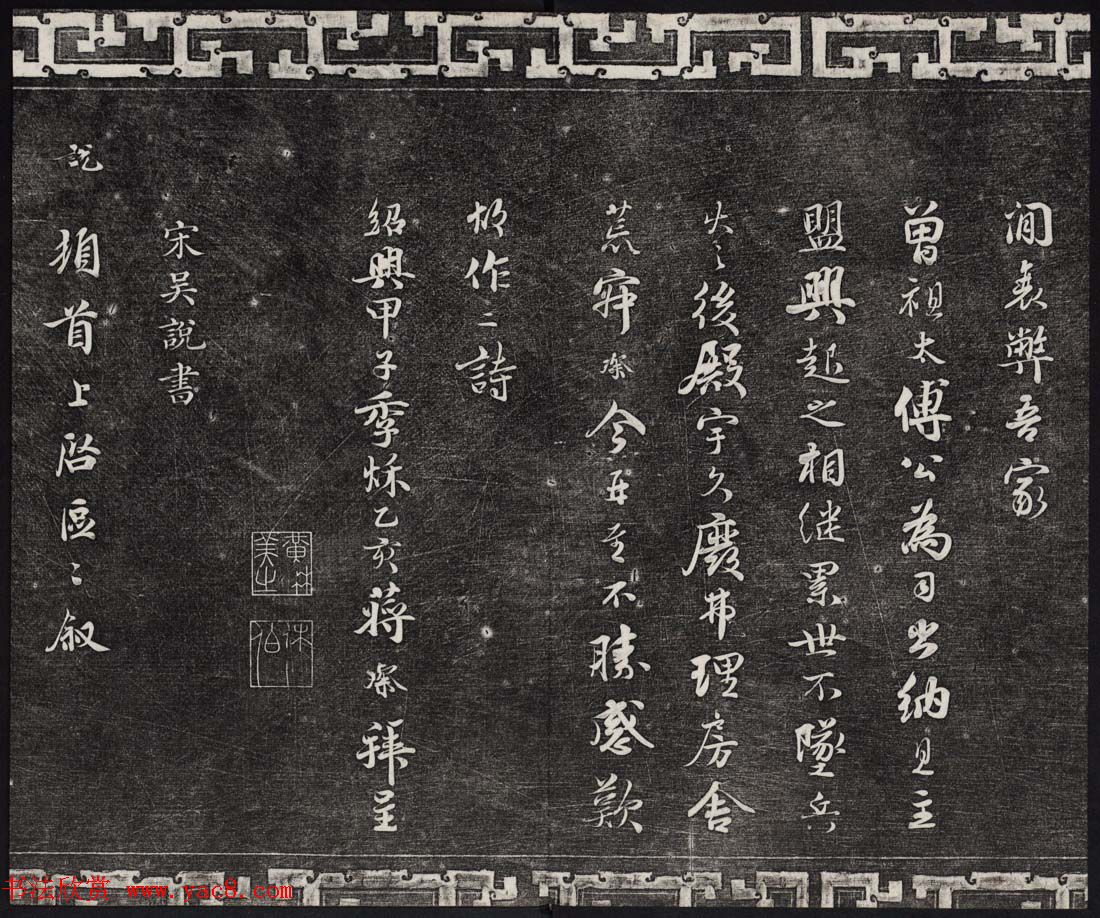 间衰弊吾家
曾祖太傅公為司出納見主
盟興起之相继累世不墜兵
火之後殿宇久廢弗理房舍
荒寂璨今再至不勝感歎
故作二詩
紹興甲子季秌乙亥蔣璨拜呈
宋吴說書
説頓首上啓區〻叙
书法欣赏 www.yac8.com